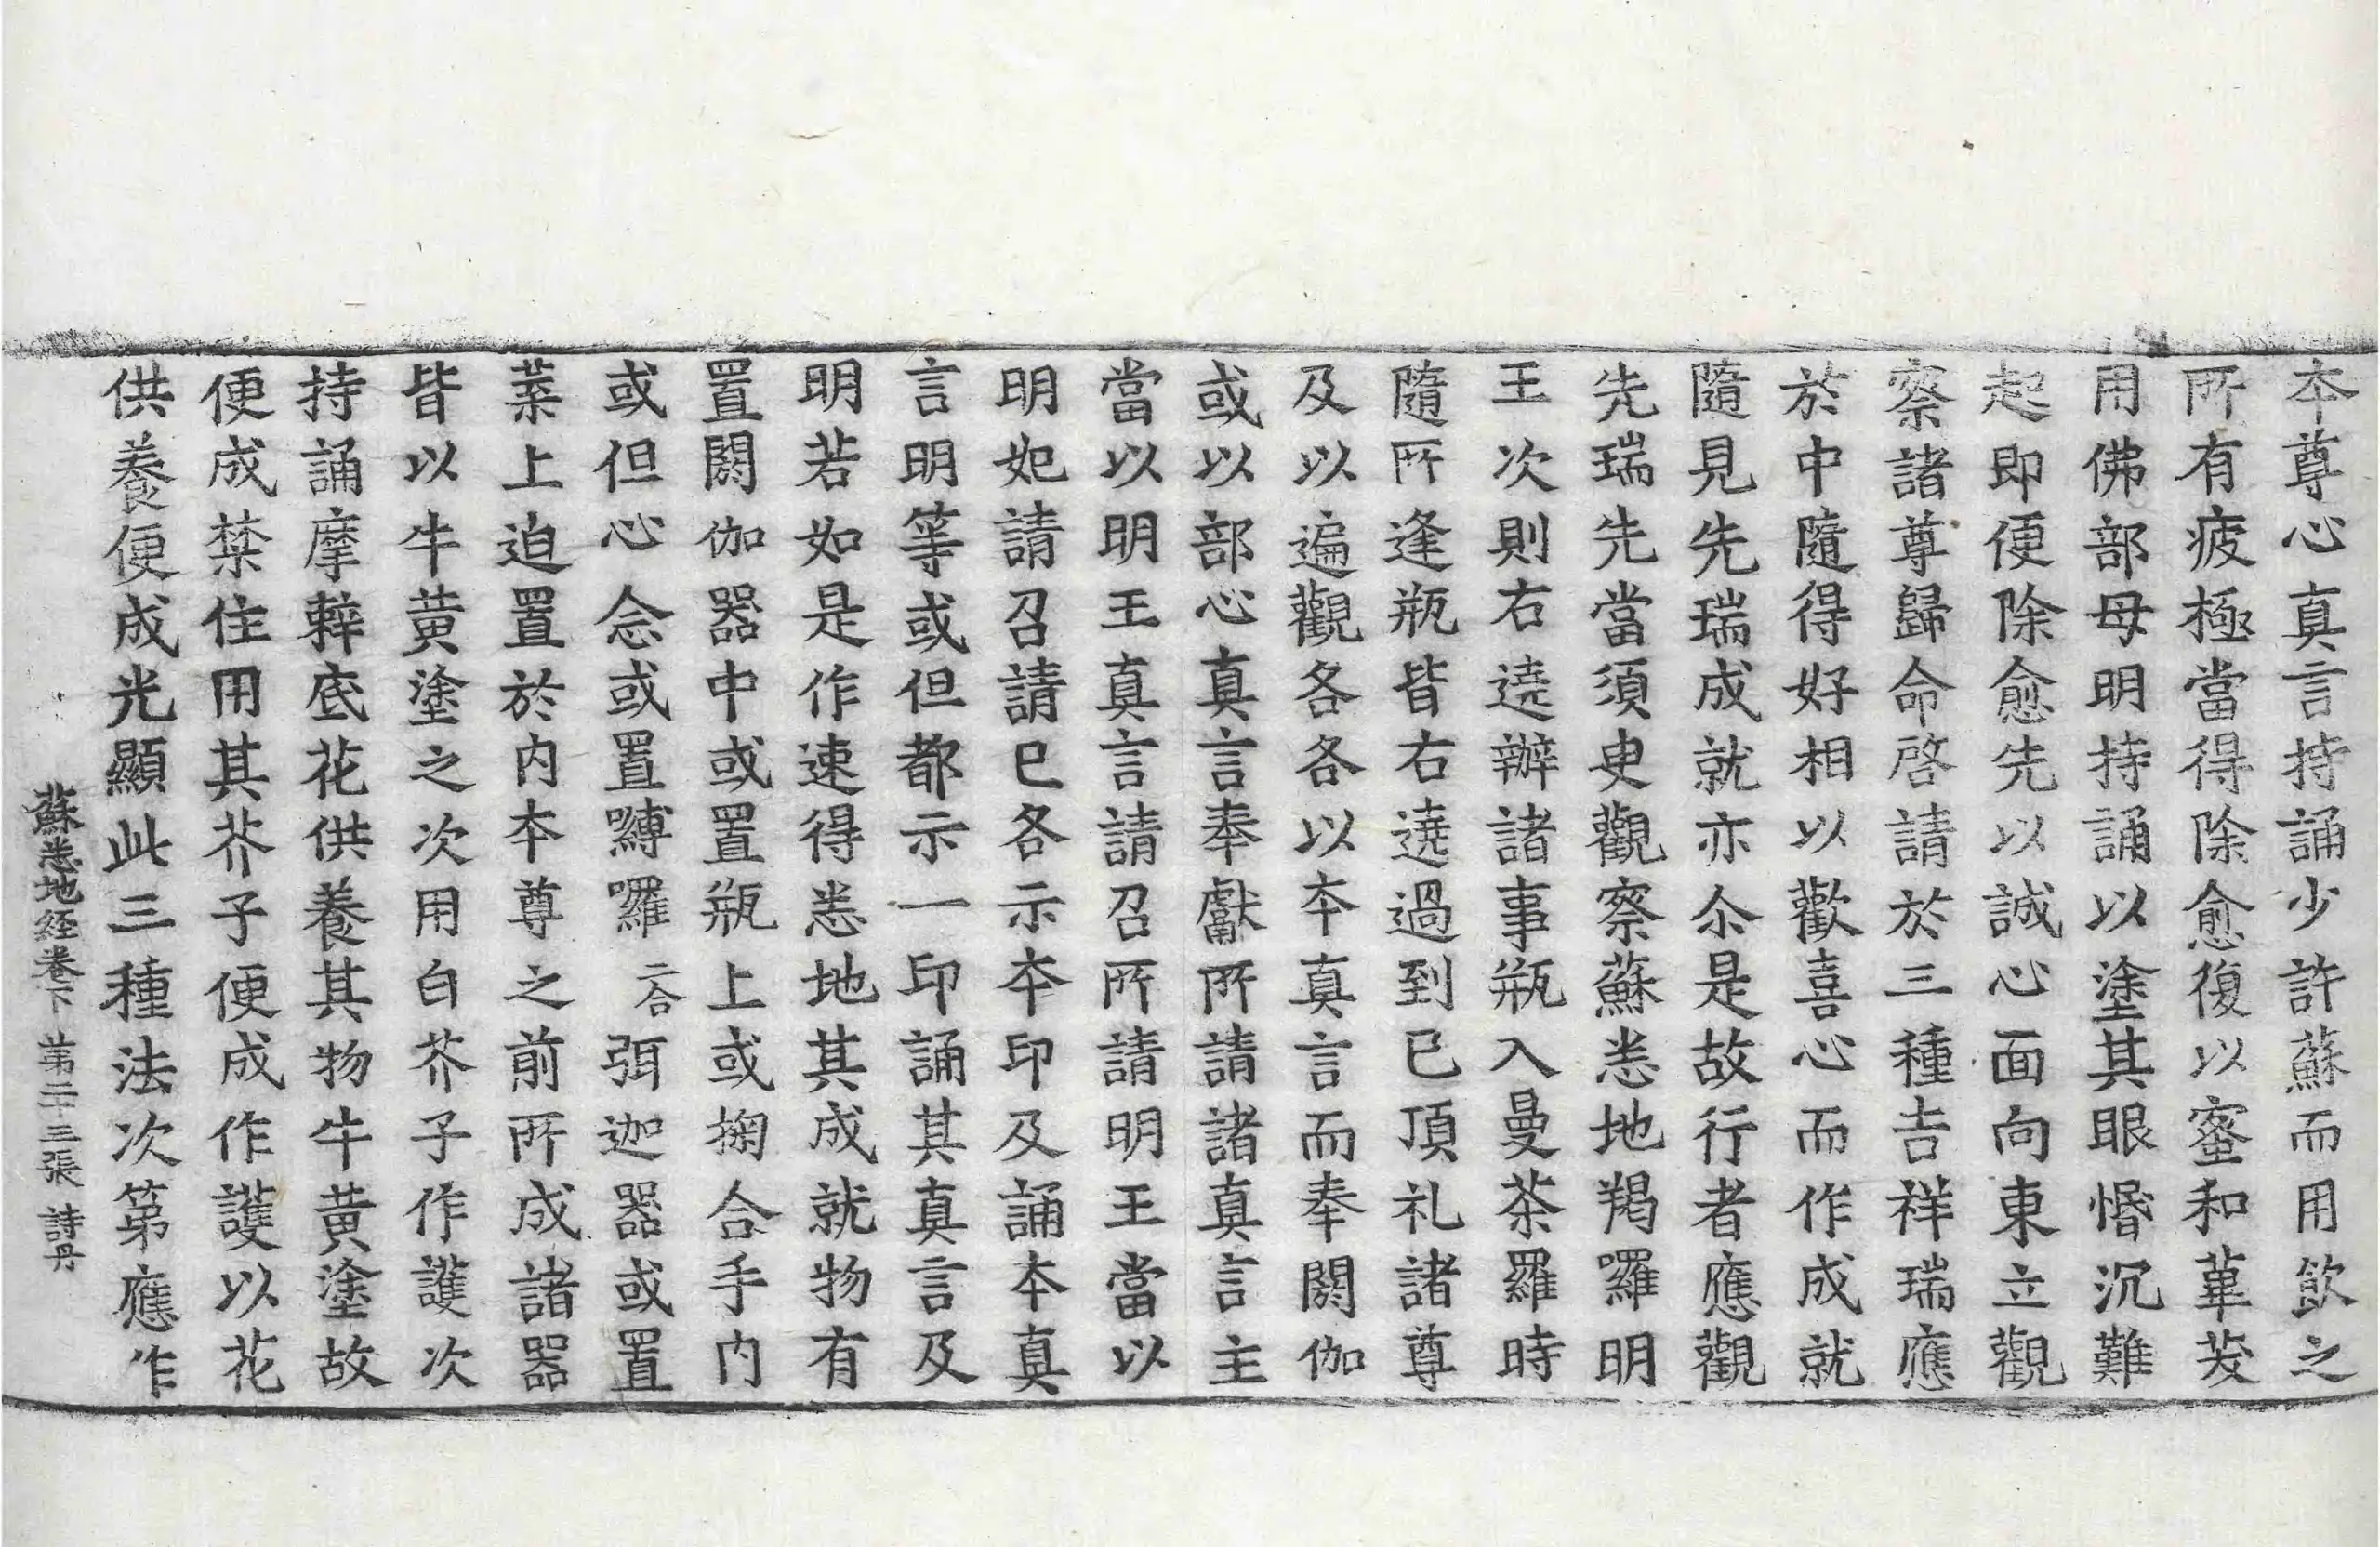 本尊心真言持誦少許蘇而用飲之
所有疲極當得除愈復以蜜和蓽茇
用佛部母明持誦以塗其眼惛沉難
起即便除愈先以誠心面向東立觀
察諸尊歸命啓請於三種吉祥瑞應
於中隨得好相以歡喜心而作成就
隨見先瑞成就亦尒是故行者應觀
先瑞先當須臾觀察蘇悉地羯囉明
王次則右遶辦諸事瓶入曼荼羅時
隨所逢瓶皆右遶過到已頂礼諸尊
及以遍觀各各以本真言而奉閼伽
或以部心真言奉獻所請諸真言主
當以明王真言請召所請明王當以
明妃請召請已各示本印及誦本真
言明等或但都示一印誦其真言及
明若如是作速得悉地其成就物有
置閼伽器中或置瓶上或掬合手内
或但心念或置嚩囉二合弭迦器或置
葉上迫置於内本尊之前所成諸器
皆以牛黄塗之次用白芥子作護次
持誦摩䔖底花供養其物牛黄塗故
便成禁住用其芥子便成作護以花
供養便成光顯此三種法次第應作
蘇悉地経卷下 苐二十三張 詩丹